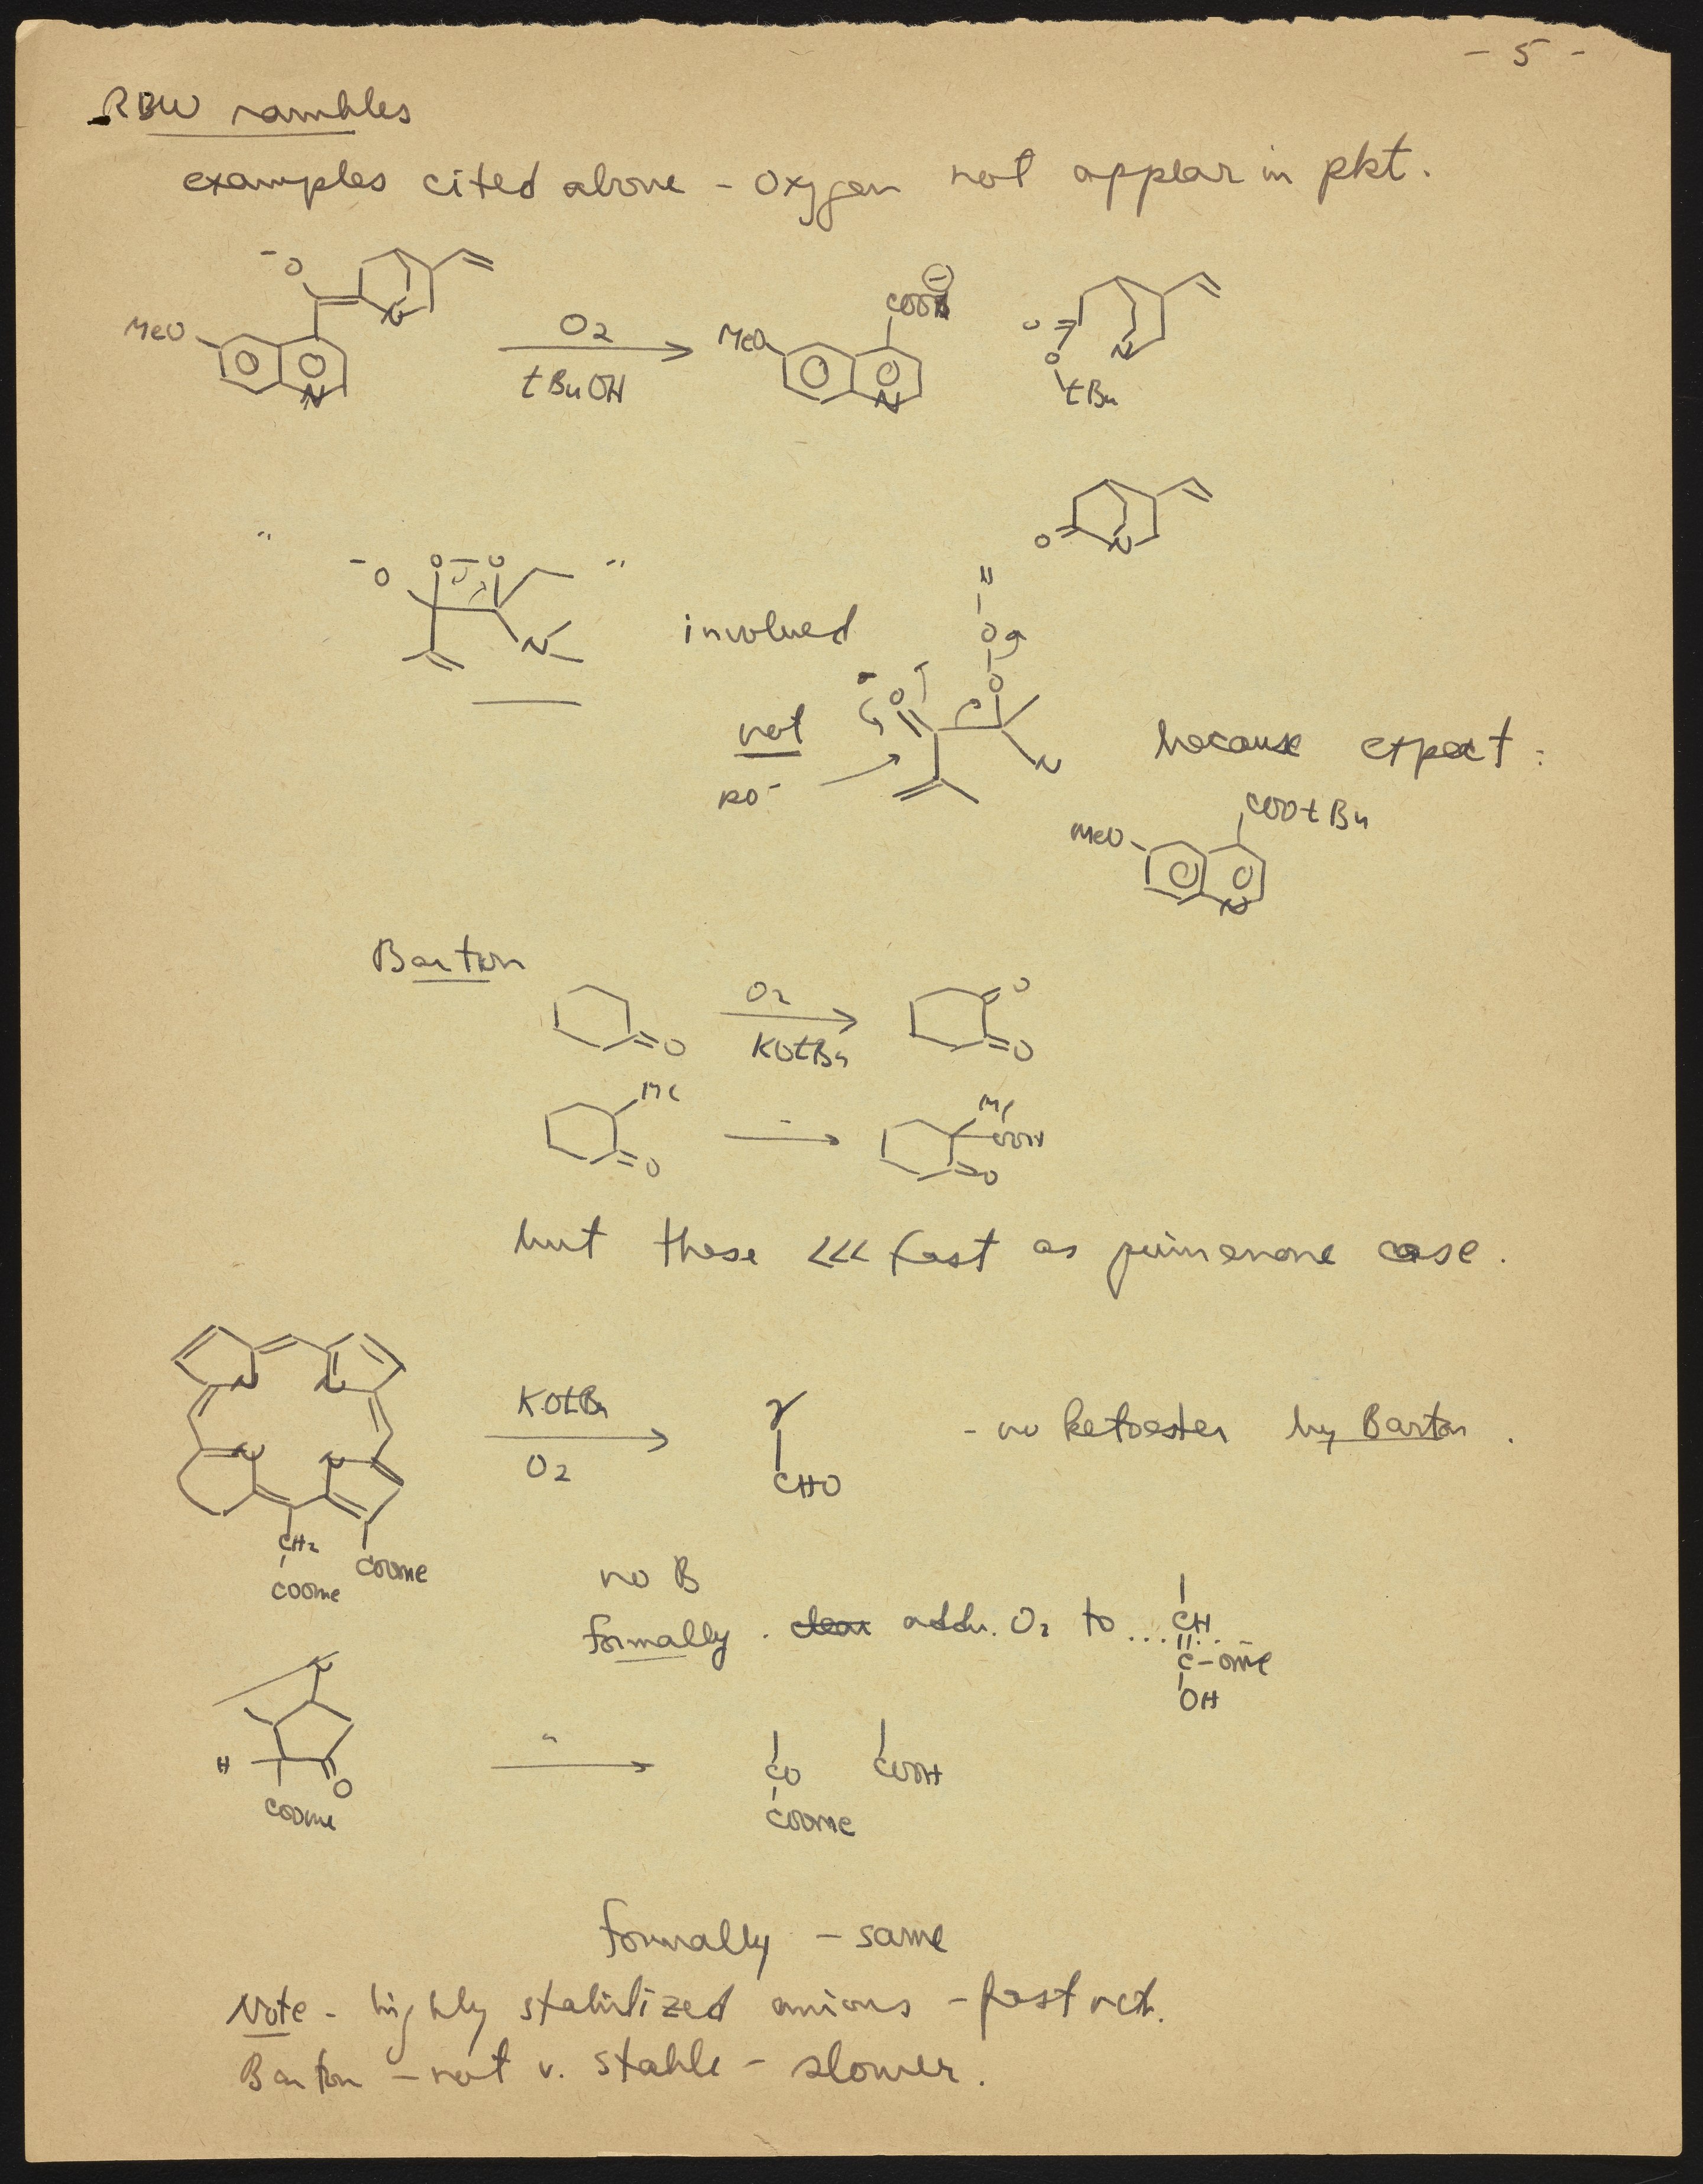 - 5 -
RBW rambles
examples cited above - oxygen not appear in pkt.
-O
N
MeO
N
O2
tBuOH
MeO
COO
-
N
O
O
tBu
N
O
N
"
-O
O-O
"
N
involved
O
O
O
not
RO-
N
because expect:
MeO
COOtBu
N
Barton
O
O2
KOtBu
O
O
Me
O
"
Me
OOH
O
but these <<< fast as quinenone case.
N
N
N
N
CH2
COOMe
COOMe
KOtBu
O2
γ
CHO
- no ketoester by Barton.
no B
formally. addn. O2 to ...
CH
C-OMe
OH
N
H
O
COOMe
"
CO
COOMe
COOH
formally - same
Note - highly stabilized anions - fast rctn.
Barton - not v. stable - slower.